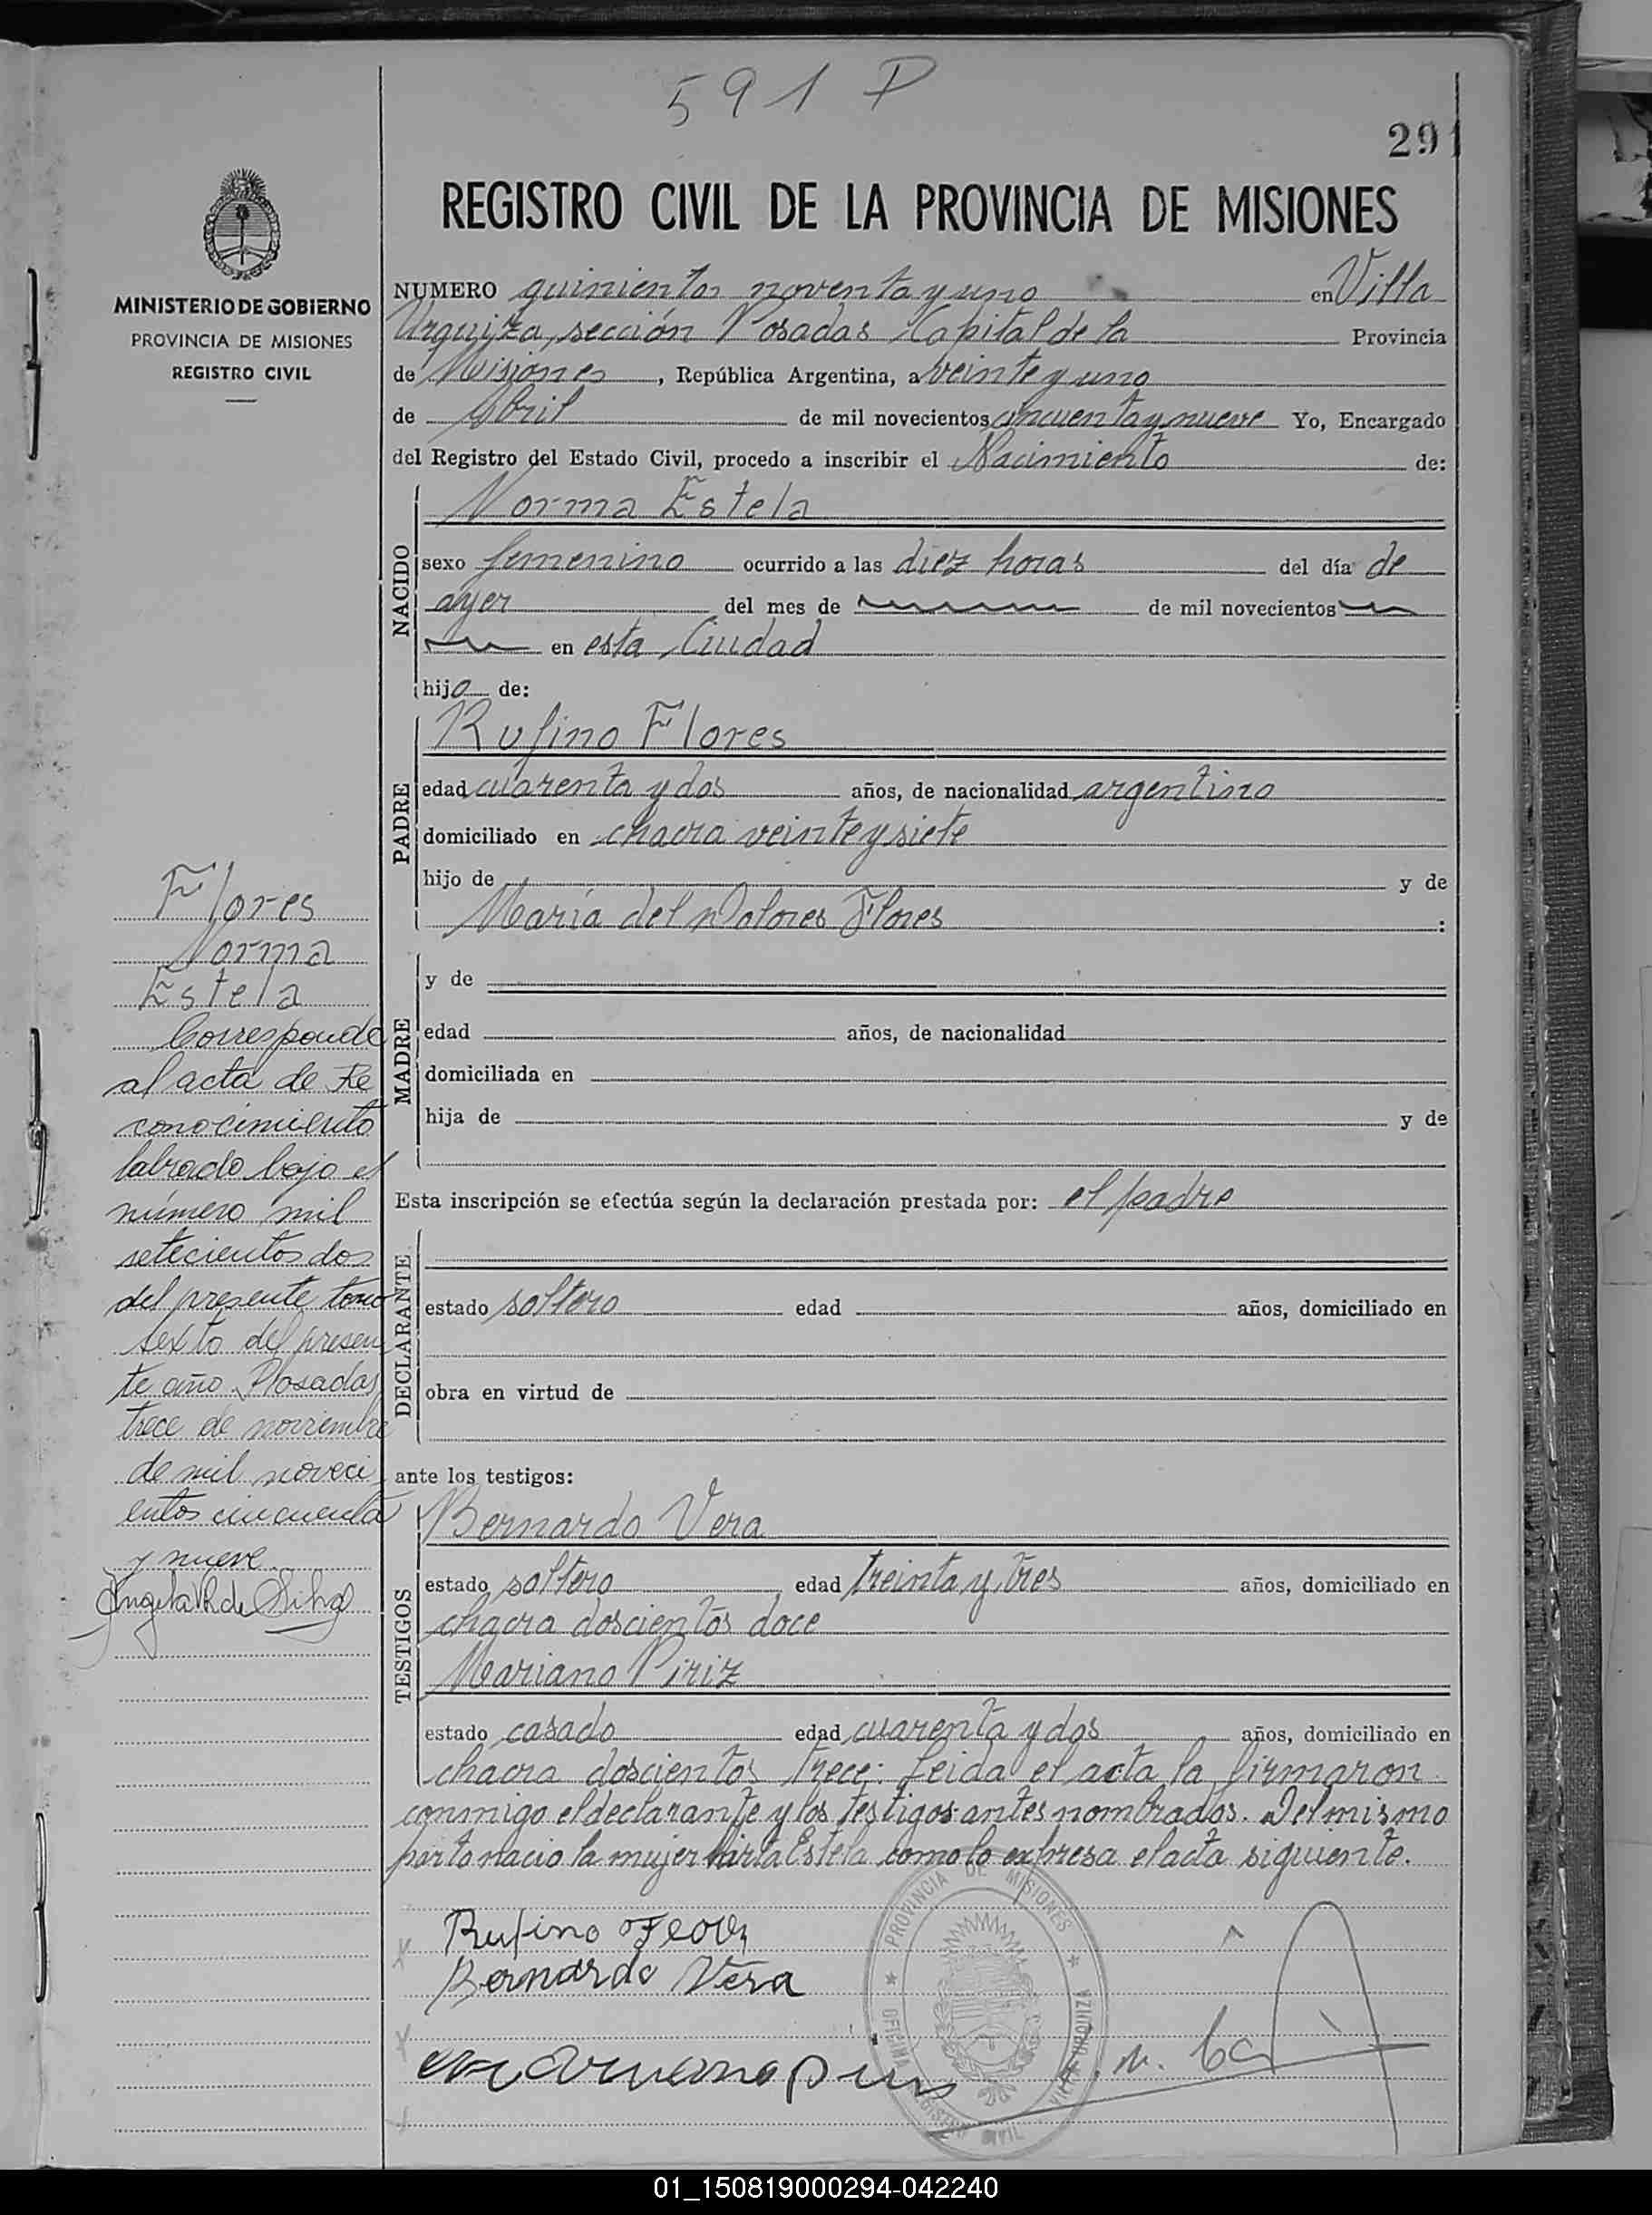 591 P
291
REGISTRO CIVIL DE LA PROVINCIA DE MISIONES
MINISTERIO DE GOBIERNO
PROVINCIA DE MISIONES
REGISTRO CIVIL
NUMERO quinientos noventa y uno en Villa
Urquiza, sección Posadas Capital de la Provincia
de Misiones, República Argentina, a veinte y uno
de Abril de mil novecientos cincuenta y nueve Yo, Encargado
del Registro del Estado Civil, procedo a inscribir el Nacimiento de:
NACIDO
Norma Estela
sexo femenino ocurrido a las diez horas del día de
ayer del mes de de mil novecientos
en esta Ciudad
hijo de:
PADRE
Rufino Flores
edad cuarenta y dos años, de nacionalidad argentino
domiciliado en chacra veinte y siete
hijo de y de
María del Dolores Flores :
MADRE
y de
edad años, de nacionalidad
domiciliada en
hija de y de
Esta inscripción se efectúa según la declaración prestada por: el padre
DECLARANTE
estado soltero edad años, domiciliado en
obra en virtud de
ante los testigos:
TESTIGOS
Bernardo Vera
estado soltero edad treinta y tres años, domiciliado en
chacra doscientos doce
Mariano Piriz
estado casado edad cuarenta y dos años, domiciliado en
chacra doscientos trece: Leida el acta la firmaron
conmigo el declarante y los testigos antes nombrados. Del mismo
parto nacio la mujer Mirta Estela como lo expresa el acta siguiente.
Flores
Norma
Estela
Corresponde
al acta de Re
conocimiento
labrado bajo el
número mil
setecientos dos
del presente tomo
sexto del presen
te año. Posadas,
trece de noviembre
de mil noveci
entos cincuenta
y nueve.
Angela V. de Silva
Rufino Flores
Bernardo Vera
Mariano Piris
PROVINCIA DE MISIONES
OFICINA REGISTRO CIVIL
VILLA URQUIZA
01_150819000294-042240